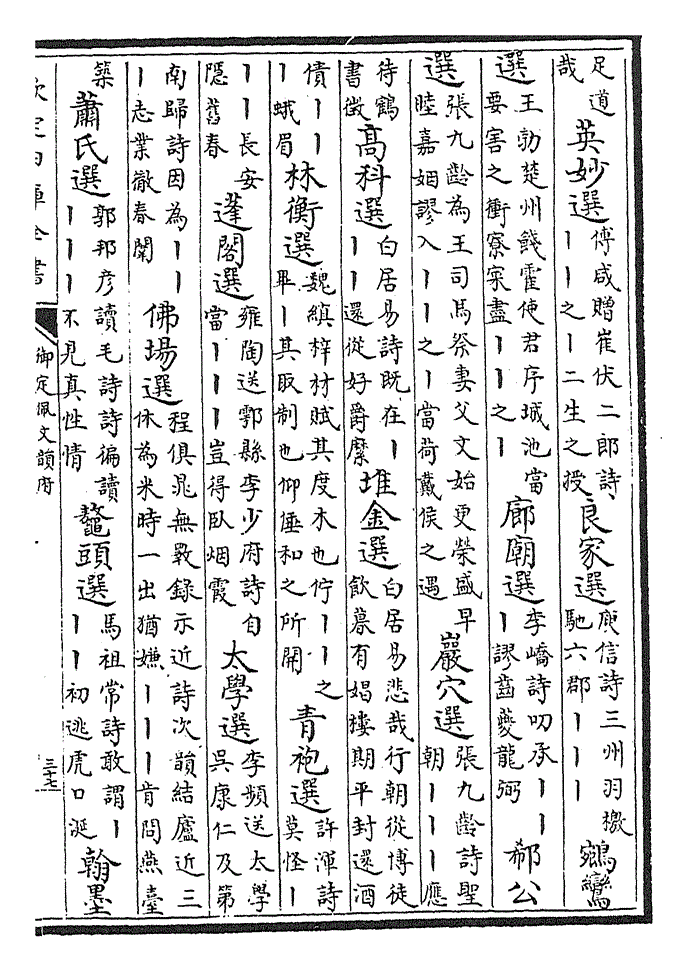 足道哉 英妙選 傅咸贈崔伏二郎詩丨丨之丨二生之授 良家選 庾信詩三州羽檄馳六郡丨丨丨 鵷鸞
選 王勃楚州餞霍使君序城池當要害之衝寮寀盡丨丨之丨 廊廟選 李嶠詩叨承丨丨丨謬齒夔龍弼 郗公
選 張九齡為王司馬祭妻父文始更榮盛早睦嘉姻謬入丨丨之丨當荷戴侯之遇 巖穴選 張九齡詩聖朝丨丨丨應
待鶴書徵 高科選 白居易詩既在丨丨丨還從好爵縻 堆金選 白居易悲哉行朝從博徒飲暮有娼樓期平封還酒
債丨丨丨蛾眉 林衡選 魏縝梓材賦其度木也佇丨丨之畢丨其取制也仰倕和之所開 青袍選 許渾詩莫怪丨
丨丨長安隱舊春 蓬閣選 雍陶送鄠縣李少府詩自當丨丨丨豈得臥烟霞 太學選 李頻送太學吳康仁及第
南歸詩因為丨丨丨志業徹春闈 佛場選 程俱晁無斁錄示近詩次韻結廬近三休為米時一出猶嫌丨丨丨肯問燕臺
築 蕭氏選 郭邦彥讀毛詩詩徧讀丨丨丨不見真性情 鼇頭選 馬祖常詩敢謂丨丨丨初逃虎口涎 翰墨
欽定四庫全書
御定佩文韻府
三十七